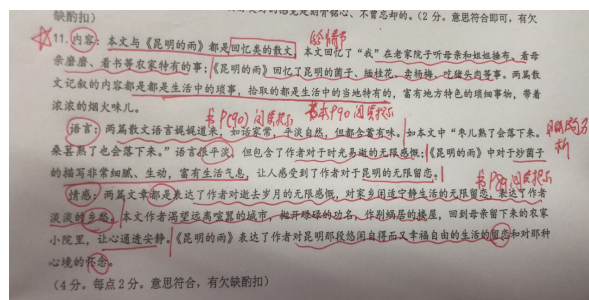 缺酌扣）
不曾忘却的。（2分。意思符合即可，有欠
11. 内容：本文与《昆明的雨》都是回忆类的散文，本文回忆了“我”在老家院子听母亲和姐姐捶布、看母
亲磨磨、看书等农家特有的事；《昆明的雨》回忆了昆明的菌子、缅桂花、卖杨梅、吃猪头肉等事。两篇散
文记叙的内容都是都是生活中的琐事，拾取的都是生活中的当地特有的，富有地方特色的琐细事物，带着
浓浓的烟火味儿。
书P(90) 阅读提示 书本P90 阅读提示
语言：两篇散文语言娓娓道来，如话家常，平淡自然，但都含蓄有味。如本文中“枣儿熟了会落下来。
桑葚熟了也会落下来。”语言很平淡，但包含了作者对于时光易逝的无限感慨；《昆明的雨》中对于炒菌子
的描写非常细腻、生动，富有生活气息，让人感受到了作者对于昆明的无限留恋。
阅读提示
情感：两篇文章都是表达了作者对逝去岁月的无限感慨，对家乡闲适宁静生活的无限留恋，表达了作者
淡淡的乡愁。本文作者渴望远离喧嚣的城市，抛开碌碌的功名，作别蜗居的楼屋，回到母亲留下来的农家
小院里，让心通透安静。《昆明的雨》表达了作者对昆明那段悠闲自得而又幸福自由的生活的留恋和对那种
心境的怀念。
（4分。每点2分。意思符合，有欠缺酌扣）